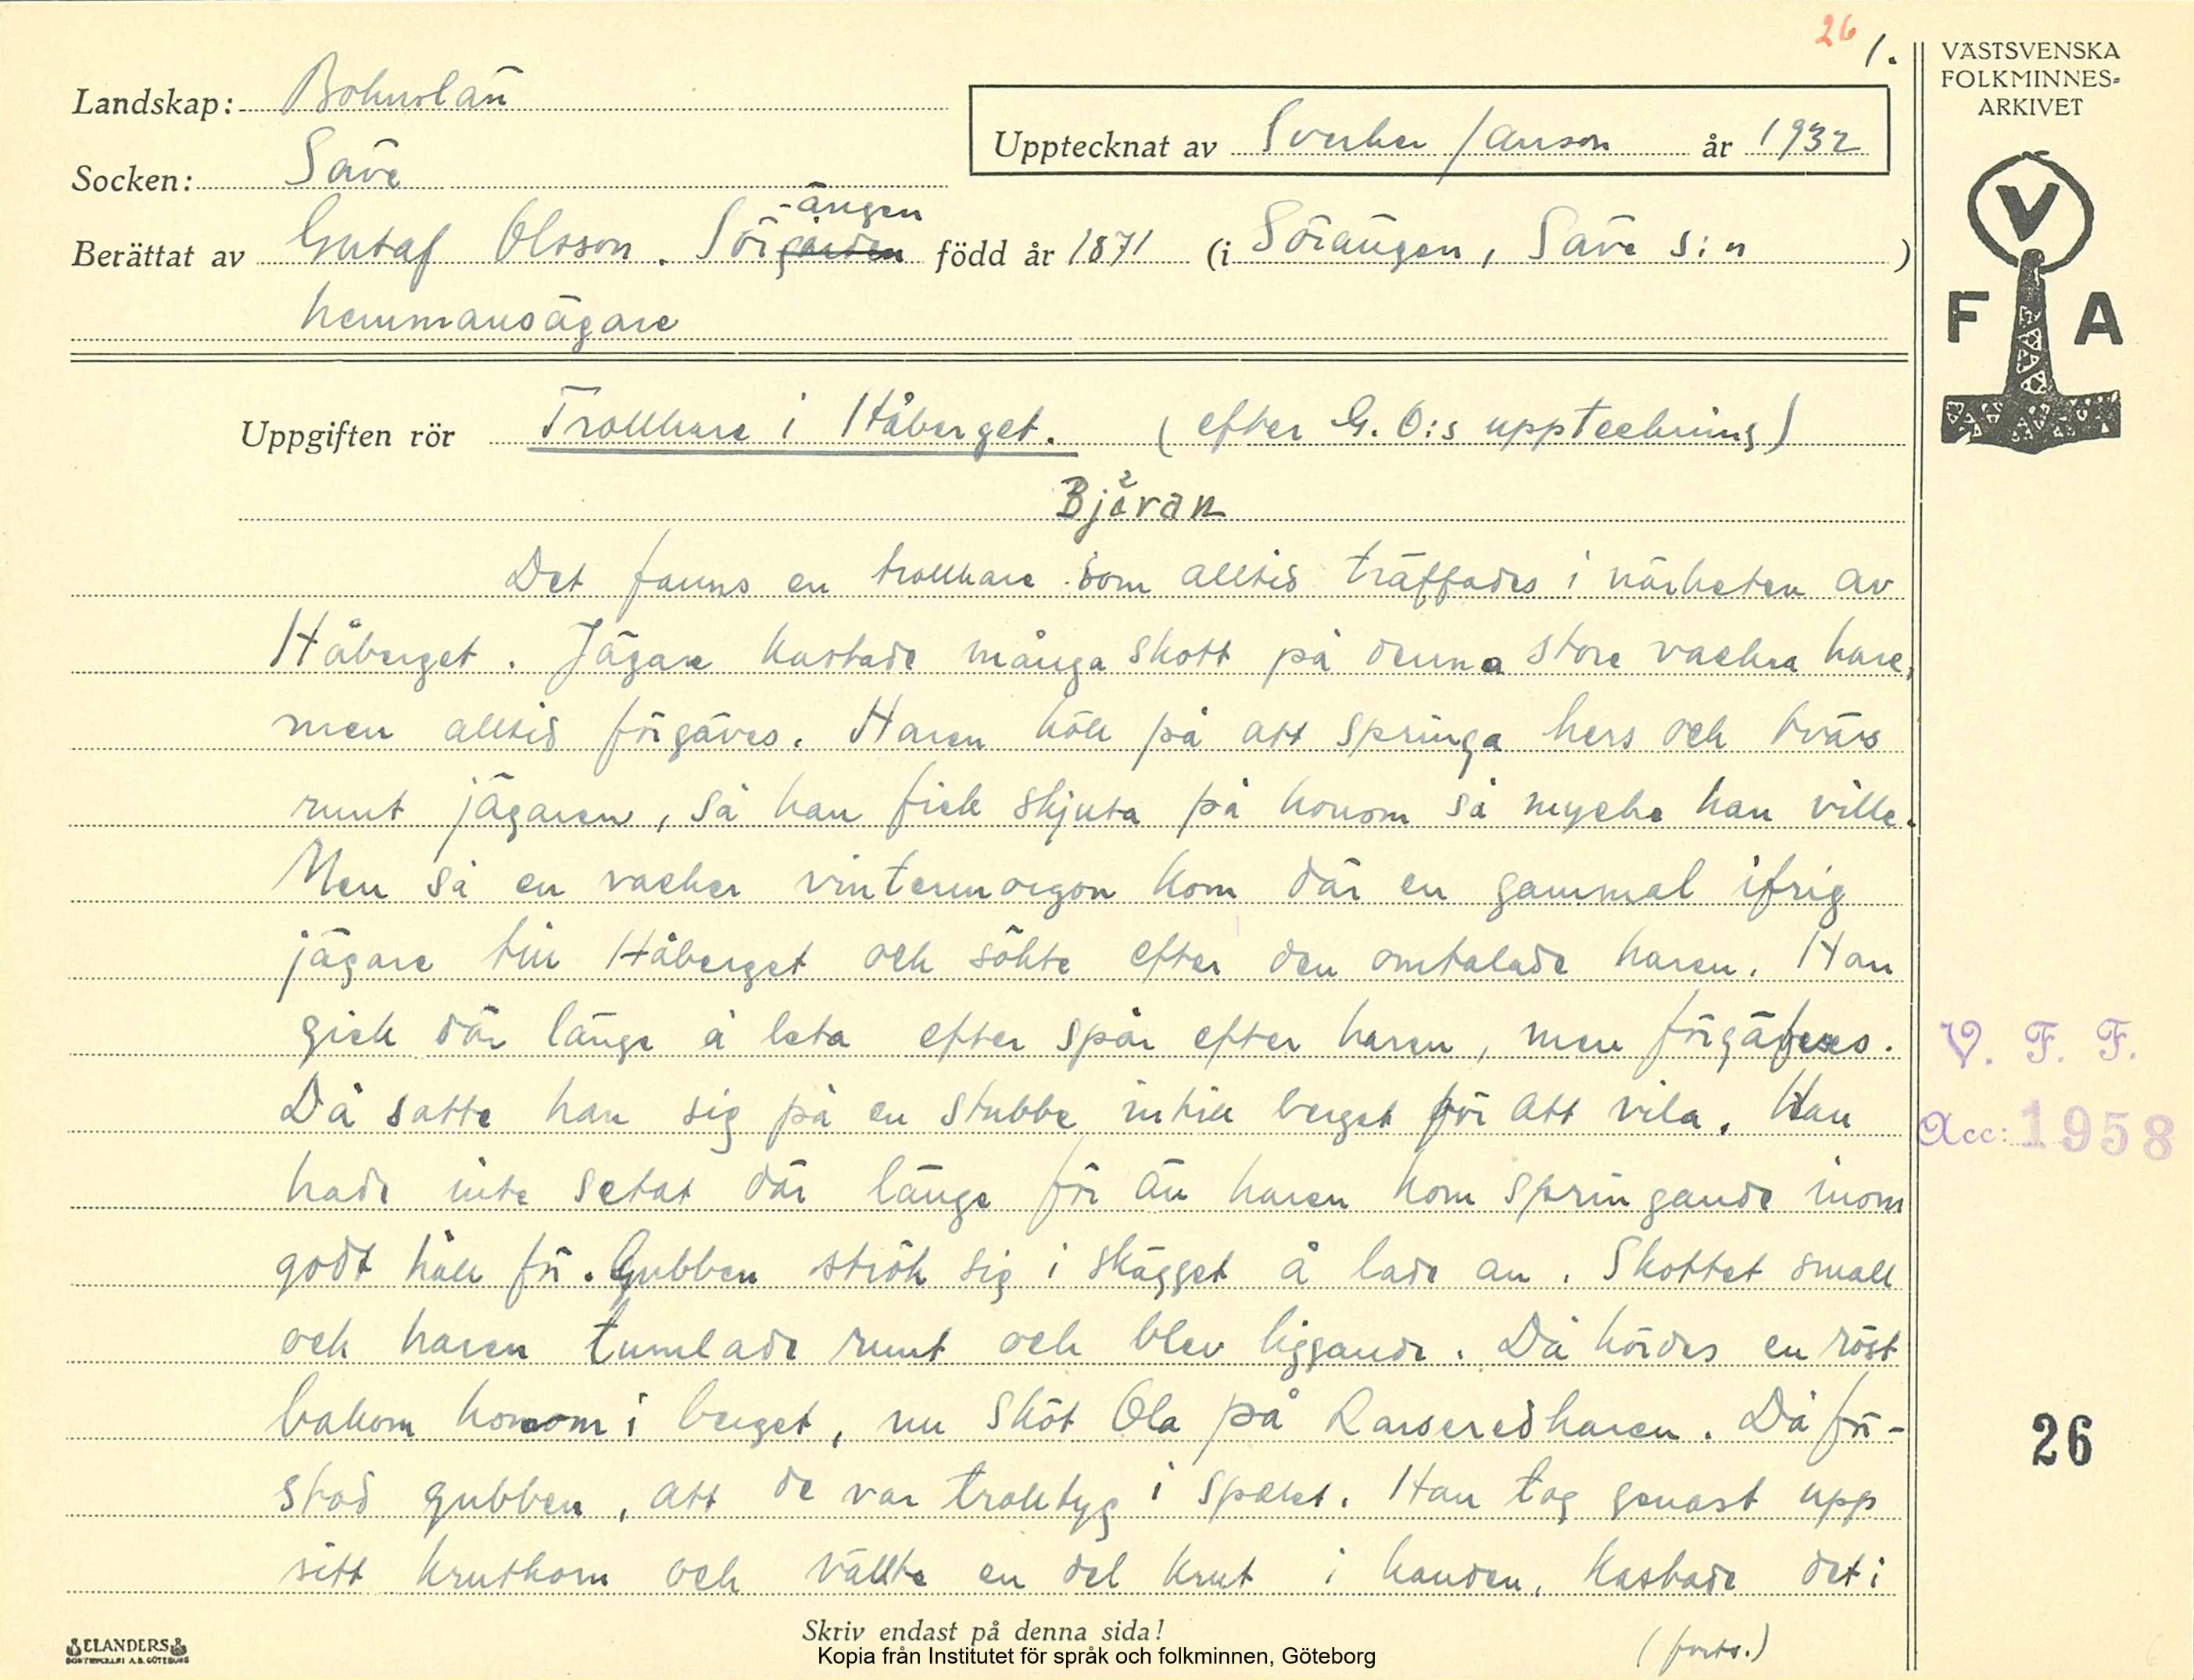 26 1.
VÄSTSVENSKA
FOLKMINNES-
ARKIVET
Landskap: Bohuslän
Upptecknat av Sverker Janson år 1932
Socken: Säve
-ängen
Berättat av Gustaf Olsson. Sörgården född år 1871 (i Sörängen, Säve s:n )
hemmansägare
V
F A
Uppgiften rör Trollhare i Håberget. (efter G. O:s uppteckning)
Bjåran
Det fanns en trollhare som alltid träffades i närheten av
Håberget. Jägare kastade många skott på denna store vackra hare,
men alltid förgäves. Haren höll på att springa hers och tvärs
runt jägaren, så han fick skjuta på honom så mycke han ville.
Men så en vacker vintermorgon kom där en gammal ifrig
jägare till Håberget och sökte efter den omtalade haren. Han
gick där länge å leta efter spår efter haren, men förgäfves.
Då satte han sig på en stubbe intill berget för att vila. Han
hade inte setat där länge för än haren kom springande inom
godt håll för. Gubben strök sig i skägget å lade an. Skottet small
och haren tumlade runt och blev liggande. Då hördes en röst
bakom honom i berget, nu sköt Ola på Larseredharen. Då för-
stod gubben, att de var trolltyg i spelet. Han tog genast upp
sitt kruthorn och vällte en del krut i handen, kastade det i
(forts.)
V. F. F.
Acc: 1958
26
Skriv endast på denna sida!
Kopia från Institutet för språk och folkminnen, Göteborg
ELANDERS
BOKTRYCKERI A.B. GÖTEBORG